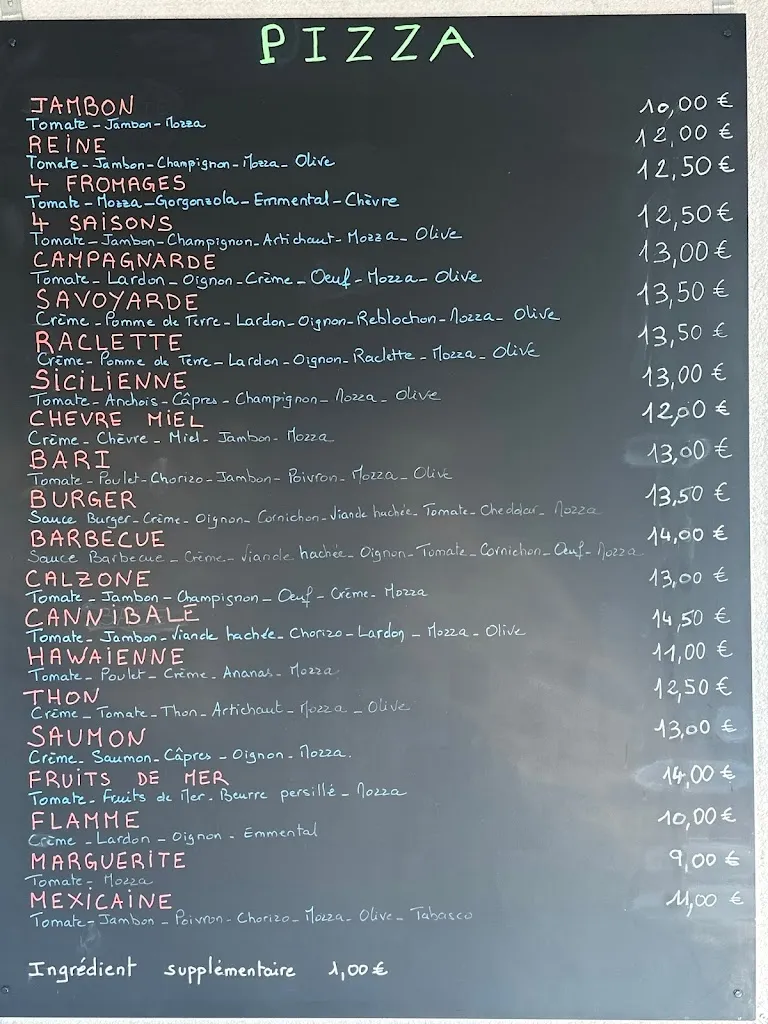 PIZZA
JAMBON 10,00 €
Tomate - Jambon - Mozza
REINE 12,00 €
Tomate - Jambon - Champignon - Mozza - Olive
4 FROMAGES 12,50 €
Tomate - Mozza - Gorgonzola - Emmental - Chèvre
4 SAISONS 12,50 €
Tomate - Jambon - Champignon - Artichaut - Mozza - Olive
CAMPAGNARDE 13,00 €
Tomate - Lardon - Oignon - Crème - Oeuf - Mozza - Olive
SAVOYARDE 13,50 €
Crème - Pomme de Terre - Lardon - Oignon - Reblochon - Mozza - Olive
RACLETTE 13,50 €
Crème - Pomme de Terre - Lardon - Oignon - Raclette - Mozza - Olive
SICILIENNE 13,00 €
Tomate - Anchois - Câpres - Champignon - Mozza - Olive
CHEVRE MIEL 12,00 €
Crème - Chèvre - Miel - Jambon - Mozza
BARI 13,00 €
Tomate - Poulet - Chorizo - Jambon - Poivron - Mozza - Olive
BURGER 13,50 €
Sauce Burger - Crème - Oignon - Cornichon - Viande hachée - Tomate - Cheddar - Mozza
BARBECUE 14,00 €
Sauce Barbecue - Crème - Viande hachée - Oignon - Tomate - Cornichon - Oeuf - Mozza
CALZONE 13,00 €
Tomate - Jambon - Champignon - Oeuf - Crème - Mozza
CANNIBALE 14,50 €
Tomate - Jambon - Viande hachée - Chorizo - Lardon - Mozza - Olive
HAWAIENNE 11,00 €
Tomate - Poulet - Crème - Ananas - Mozza
THON 12,50 €
Crème - Tomate - Thon - Artichaut - Mozza - Olive
SAUMON 13,00 €
Crème - Saumon - Câpres - Oignon - Mozza.
FRUITS DE MER 14,00 €
Tomate - Fruits de Mer - Beurre persillé - Mozza
FLAMME 10,00 €
Crème - Lardon - Oignon - Emmental
MARGUERITE 9,00 €
Tomate - Mozza
MEXICAINE 11,00 €
Tomate - Jambon - Poivron - Chorizo - Mozza - Olive - Tabasco
Ingrédient supplémentaire 1,00 €